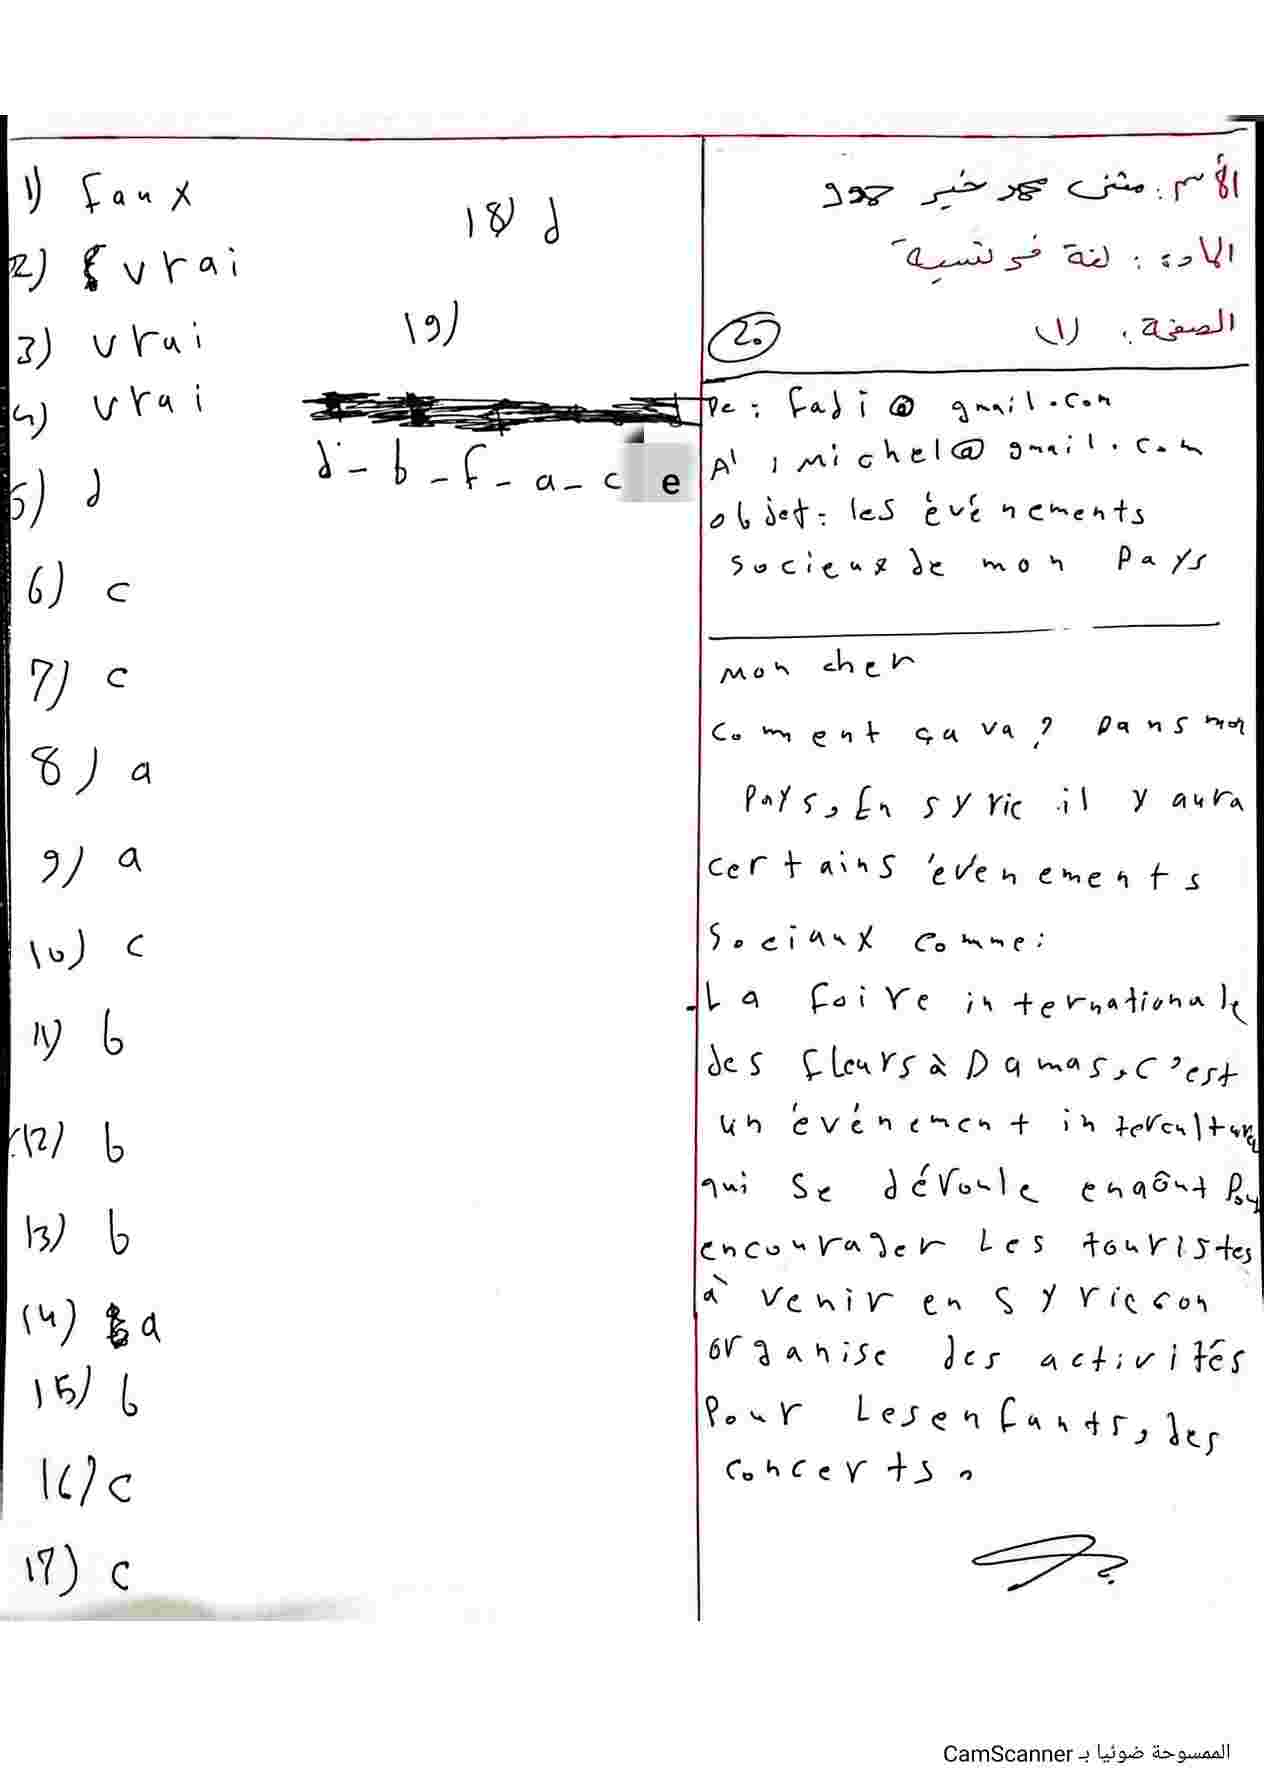 1) faux
2) vrai
3) vrai
4) vrai
5) d
6) c
7) c
8) a
9) a
10) c
11) b
12) b
13) b
14) a
15) b
16) c
17) c
18) d
19)
d - b - f - a - c e
الأسم : مثنى محمد خير حمود
المادة : لغة فرنسية
الصفحة : (1)
20
De : fadi@gmail.com
A' : michel@gmail.com
objet : les événements
socieux de mon Pays
mon cher
Comment ça va ? Dans mon
Pays, En syrie il y aura
certains événements
sociaux comme :
-La foire internationale
des fleurs à Damas, c'est
un événement intercultur
qui se déroule en août Pou
encourager Les touristes
à venir en Syrie on
organise des activités
Pour Les enfants, des
concerts.
الممسوحة ضوئيا بـ CamScanner